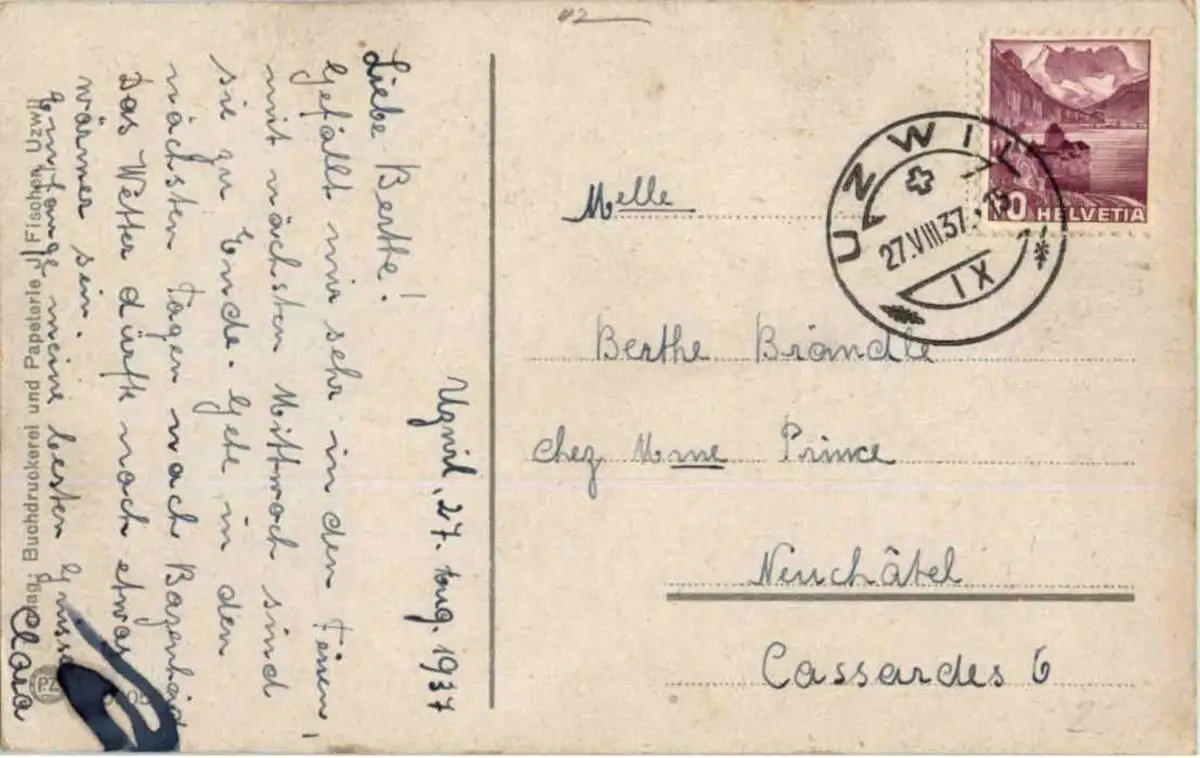 Uzwil, 27. Aug. 1937
Liebe Berthe!
Gefällt mir sehr in den Ferien,
mit nächsten Mittwoch sind
sie zu Ende. Gehe in den
nächsten Tagen nach Bazenheid
Das Wetter dürfte noch etwas
wärmer sein.
Empfange meine besten Grüsse
Clara
Buchdruckerei und Papeterie J. Fischer, Uzwil
PZ
UZWIL
27.VIII.37
IX
10 HELVETIA
Melle
Berthe Brändle
chez Mme Prince
Neuchâtel
Cassardes 6